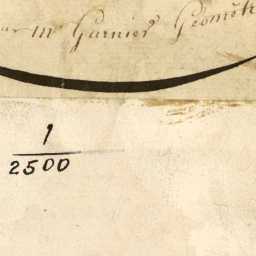 m Garnier Géomèt
1
2500